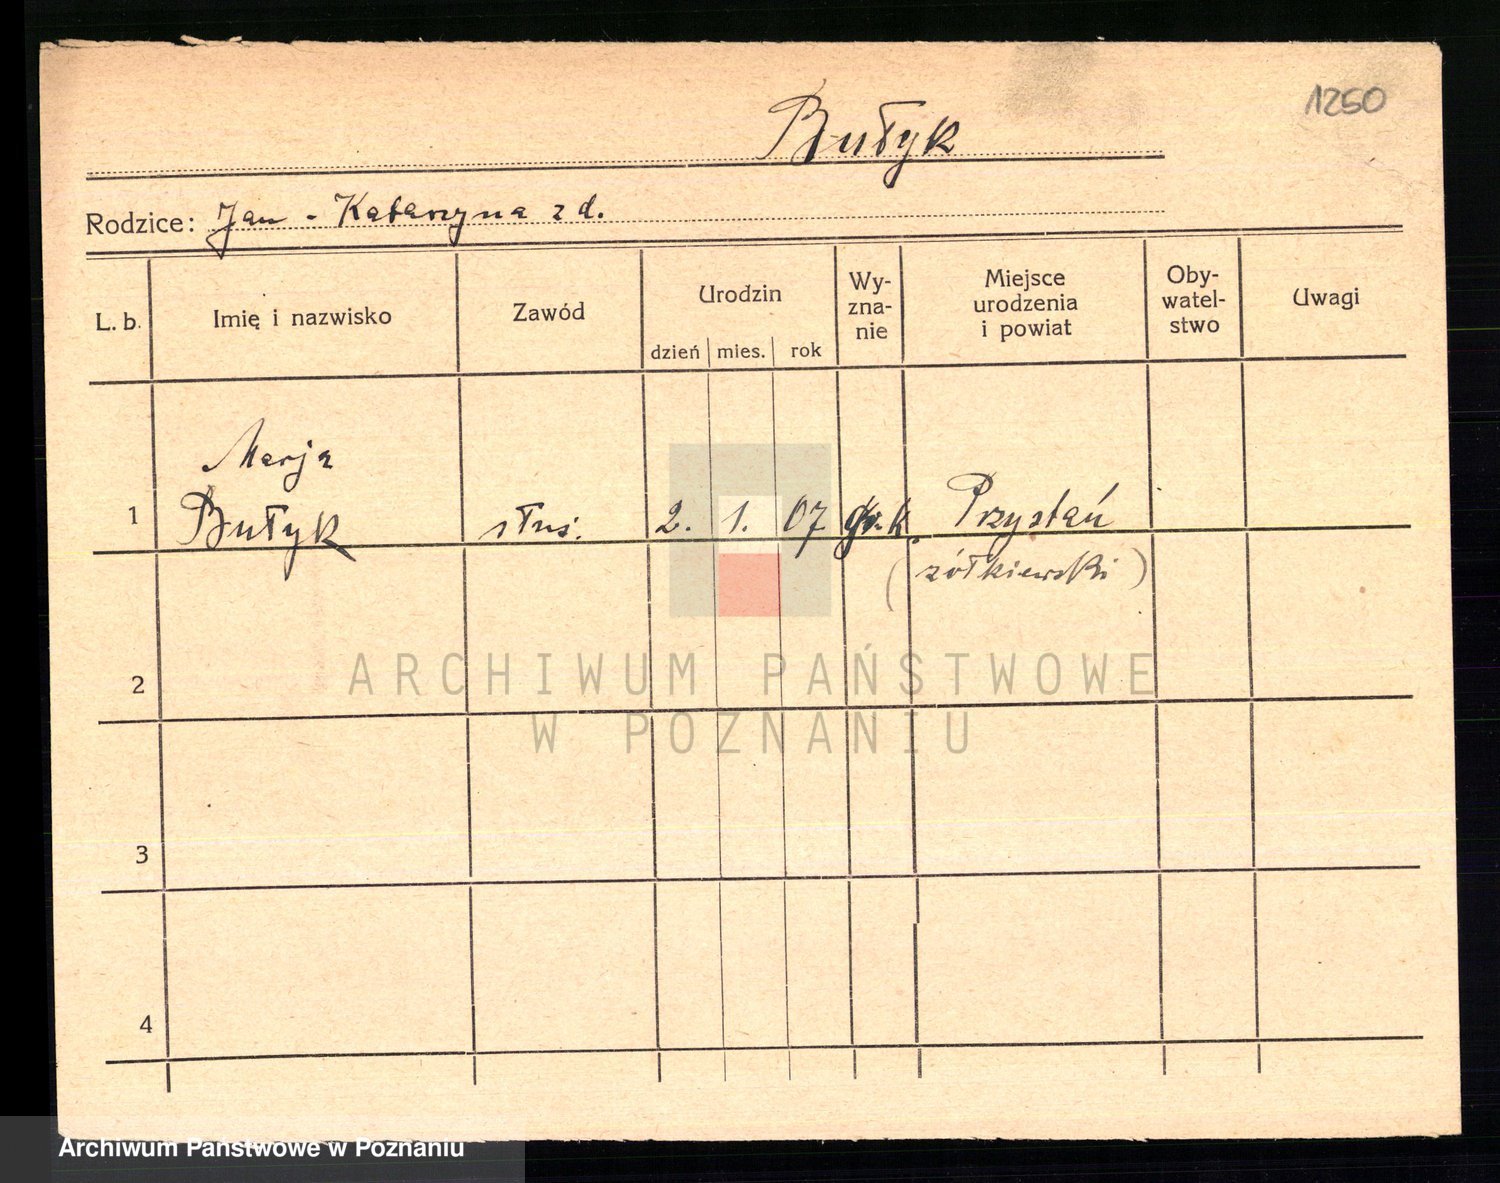 1250
Bułyk
Rodzice: Jan - Katarzyna z d.
L. b. Imię i nazwisko Zawód Urodzin Wy- zna- nie Miejsce urodzenia i powiat Oby- watel- stwo Uwagi
dzień mies. rok
Marja
1 Bułyk służ. 2. 1. 07 gr.k. Przystań
(żółkiewski)
2
ARCHIWUM PAŃSTWOWE
W POZNANIU
3
4
Archiwum Państwowe w Poznaniu